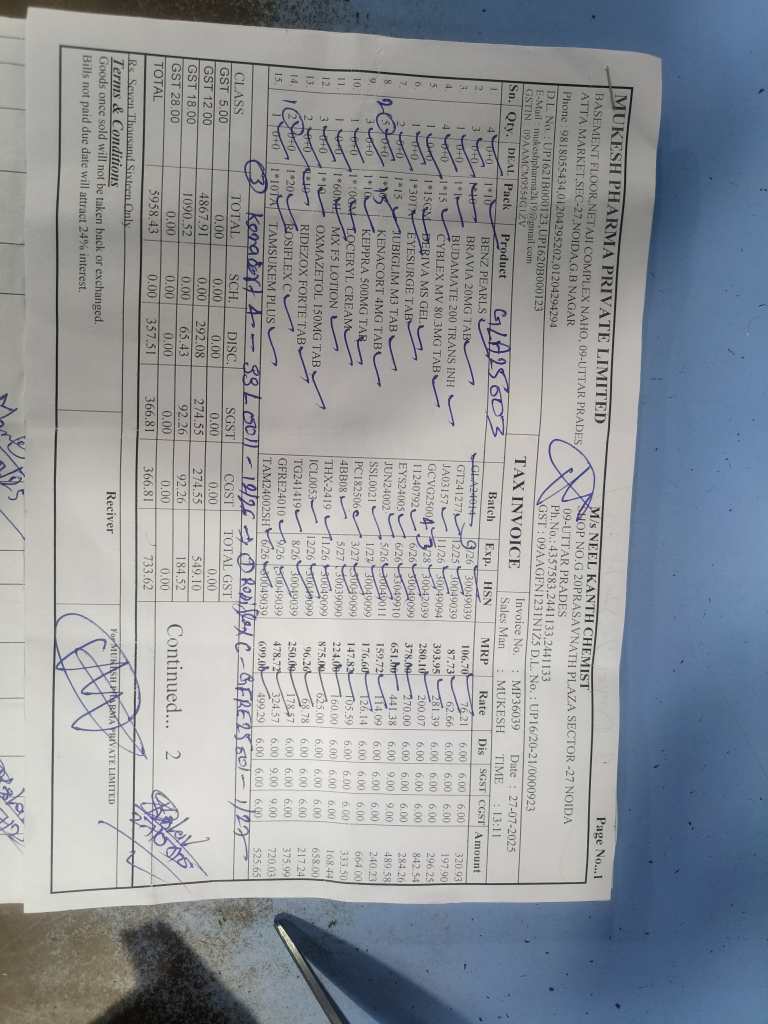 Page No...1
MUKESH PHARMA PRIVATE LIMITED
BASEMENT FLOOR,NETAJI COMPLEX NAHO, 09-UTTAR PRADES
ATTA MARKET,SEC-27,NOIDA,G B NAGAR
Phone : 9818055434,01204295202,01204294294
D.L. No. : UP1621B000123,UP1620B000123
E-Mail : mukeshpharma2k19@gmail.com
GSTIN : 09AAMCM9554G1ZV
M/s NEEL KANTH CHEMIST
SHOP NO,G 20PRASAVNATH PLAZA SECTOR -27 NOIDA
09-UTTAR PRADES
Ph.No.: 4357583,2441133,2441133
GST : 09AAGFN1231N1Z5 D.L. No. : UP16/20-21/0000923
TAX INVOICE
Invoice No. : MP36039 Date : 27-07-2025
Sales Man : MUKESH TIME : 13:11
GLA25003
Sn. Qty. DEAL Pack Product Batch Exp. HSN MRP Rate Dis SGST CGST Amount
1. 4 0+0 1*10 BENZ PEARLS GLA24014 9/26 30049039 106.70 76.21 6.00 6.00 6.00 320.93
2. 3 0+0 1*10 BRAVIA 20MG TAB GT241277 12/25 30049039 87.73 62.66 6.00 6.00 6.00 197.90
3. 1 0+0 BUDAMATE 200 TRANS INH JA03157 11/26 30049094 393.95 281.39 6.00 6.00 6.00 296.25
4. 4 0+0 1*15 CYBLEX MV 80.3MG TAB GCVG2500 30042039 280.10 200.07 6.00 6.00 6.00 842.54
5. 1 0+0 DERIVA MS GEL 11240792 6/26 30049099 378.00 270.00 6.00 6.00 6.00 284.26
6. 1 0+0 EYESURGE TAB EYS24005 6/26 33049910 651.80 441.38 6.00 9.00 9.00 489.58
7. 2 0+0 1*15 JUBIGLIM M3 TAB JUN24002 5/26 30049011 159.72 114.09 6.00 6.00 6.00 240.23
8. 5 0+0 KENACORT 4MG TAB SSL0021 1/27 30049099 176.60 126.14 6.00 6.00 6.00 664.00
9. 3 0+0 1*10 KEPPRA 500MG TAB PC182506 3/27 30049099 147.82 105.59 6.00 6.00 6.00 333.50
10. 1 0+0 LOCERYL CREAM 4BB08 5/27 30039090 224.00 160.00 6.00 6.00 6.00 168.44
11. 1 0+0 1*60ML MX F5 LOTION THX-2419 11/26 30049099 875.00 625.00 6.00 6.00 6.00 658.00
12. 3 0+0 1*10 OXMAZETOL 150MG TAB ICL0053 12/26 30049099 96.26 68.78 6.00 6.00 6.00 217.24
13. 2 0+0 1*10 RIDEZOX FORTE TAB TG241419 8/26 30049099 250.00 178.57 6.00 6.00 6.00 375.99
14. 2 0+0 1*20 ROSIFLEX C GFRE24010 9/26 30049039 478.72 324.57 6.00 9.00 9.00 720.03
15. 1 0+0 1*10TA TAMSUKEM PLUS TAM24002SH 6/26 30049039 699.00 499.29 6.00 6.00 6.00 525.65
CLASS TOTAL SCH. DISC. SGST CGST TOTAL GST
GST 5.00 0.00 0.00 0.00 0.00 0.00 0.00
GST 12.00 4867.91 0.00 292.08 274.55 274.55 549.10
GST 18.00 1090.52 0.00 65.43 92.26 92.26 184.52
GST 28.00 0.00 0.00 0.00 0.00 0.00 0.00
TOTAL 5958.43 0.00 357.51 366.81 366.81 733.62
Continued... 2
Rs. Seven Thousand Sixteen Only
Terms & Conditions
Goods once sold will not be taken back or exchanged.
Bills not paid due date will attract 24% interest.
Reciver
For MUKESH PHARMA PRIVATE LIMITED